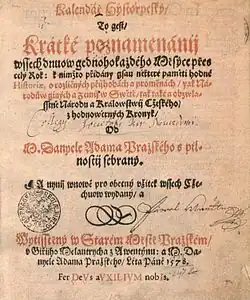 Kalendář Hystorycký/
To gest/
Krátké poznamenánij
wssech dnuow gednohokaždého Měsýce pres
celý Rok: k nimžto přidány gsau některé paměti hodné
Historiæ, o rozličných přijhodách a proměnách / yak Ná-
roduow giných a Zemijch w Swětě, tak také a obzwlá-
sstně Národu a Králowstwij Cžeského/
z hodnowěrných Kronyk/
Od
M. Danyele Adama Pražského s pil-
nostij sebraný.
A nynij wnowě pro obecný vžitek wssech Cže-
chuow wydaný/ a
Wytisstěný w Starém Městě Pražském/
v Giřijho Melantrycha z Awentýnu: a M. Da-
nyele Adama Pražského/ Léta Páně 1578.
Fer DeVs aVXILIVM nobIs.